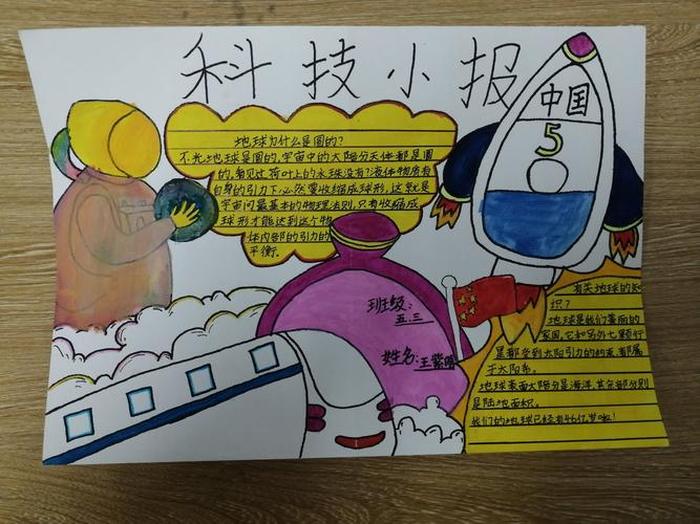 科技小报
地球为什么是圆的?
不光地球是圆的,宇宙中的大部分天体都是圆
的,看见过荷叶上的水珠没有?液体物质有
自身的引力下必然要收缩成球形,这就是
宇宙间最基本的物理法则,只有收缩成
球形才能达到这个物
体内部的引力的
平衡。
中国
5
班级:
五.三
姓名:王紫
有关地球的知
识?
地球是我们美丽的
家国,它和另外七颗行
星都受到太阳引力的约束,都属
于太阳系。
地球表面大部分是海洋,其余部分则
是陆地面积。
我们的地球已经有46亿岁啦!